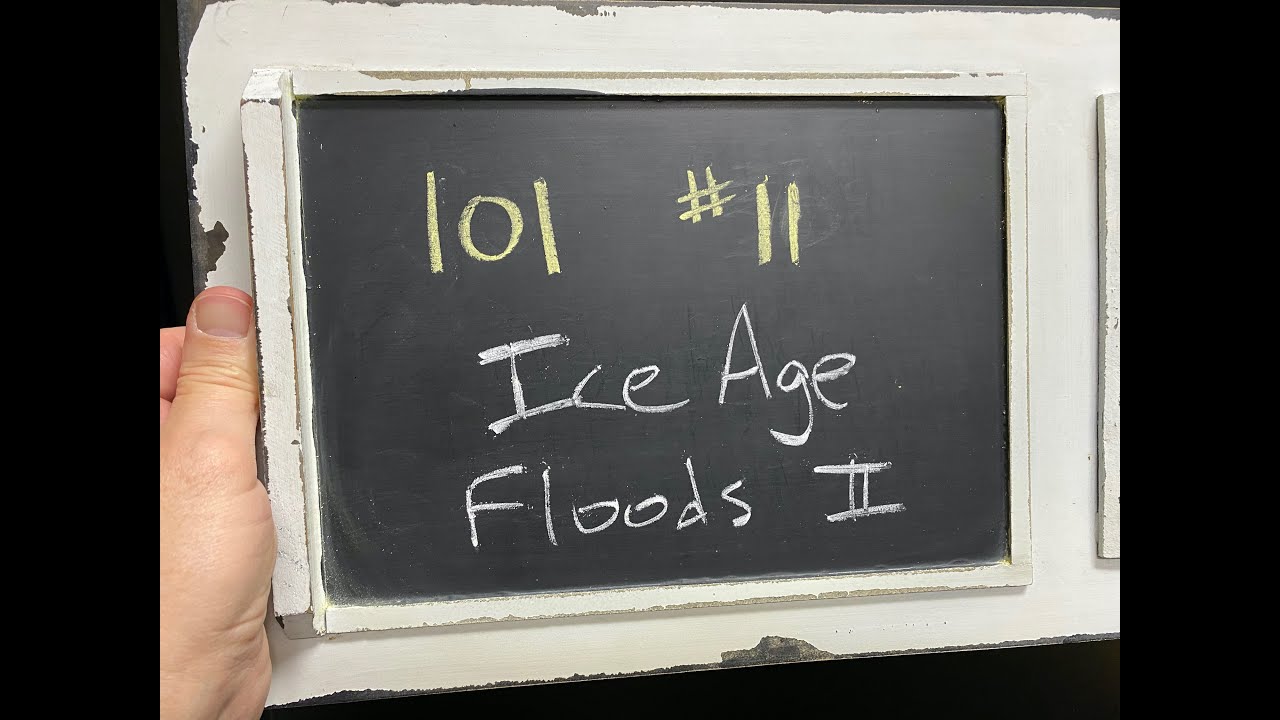 101 #11
Ice Age
Floods II